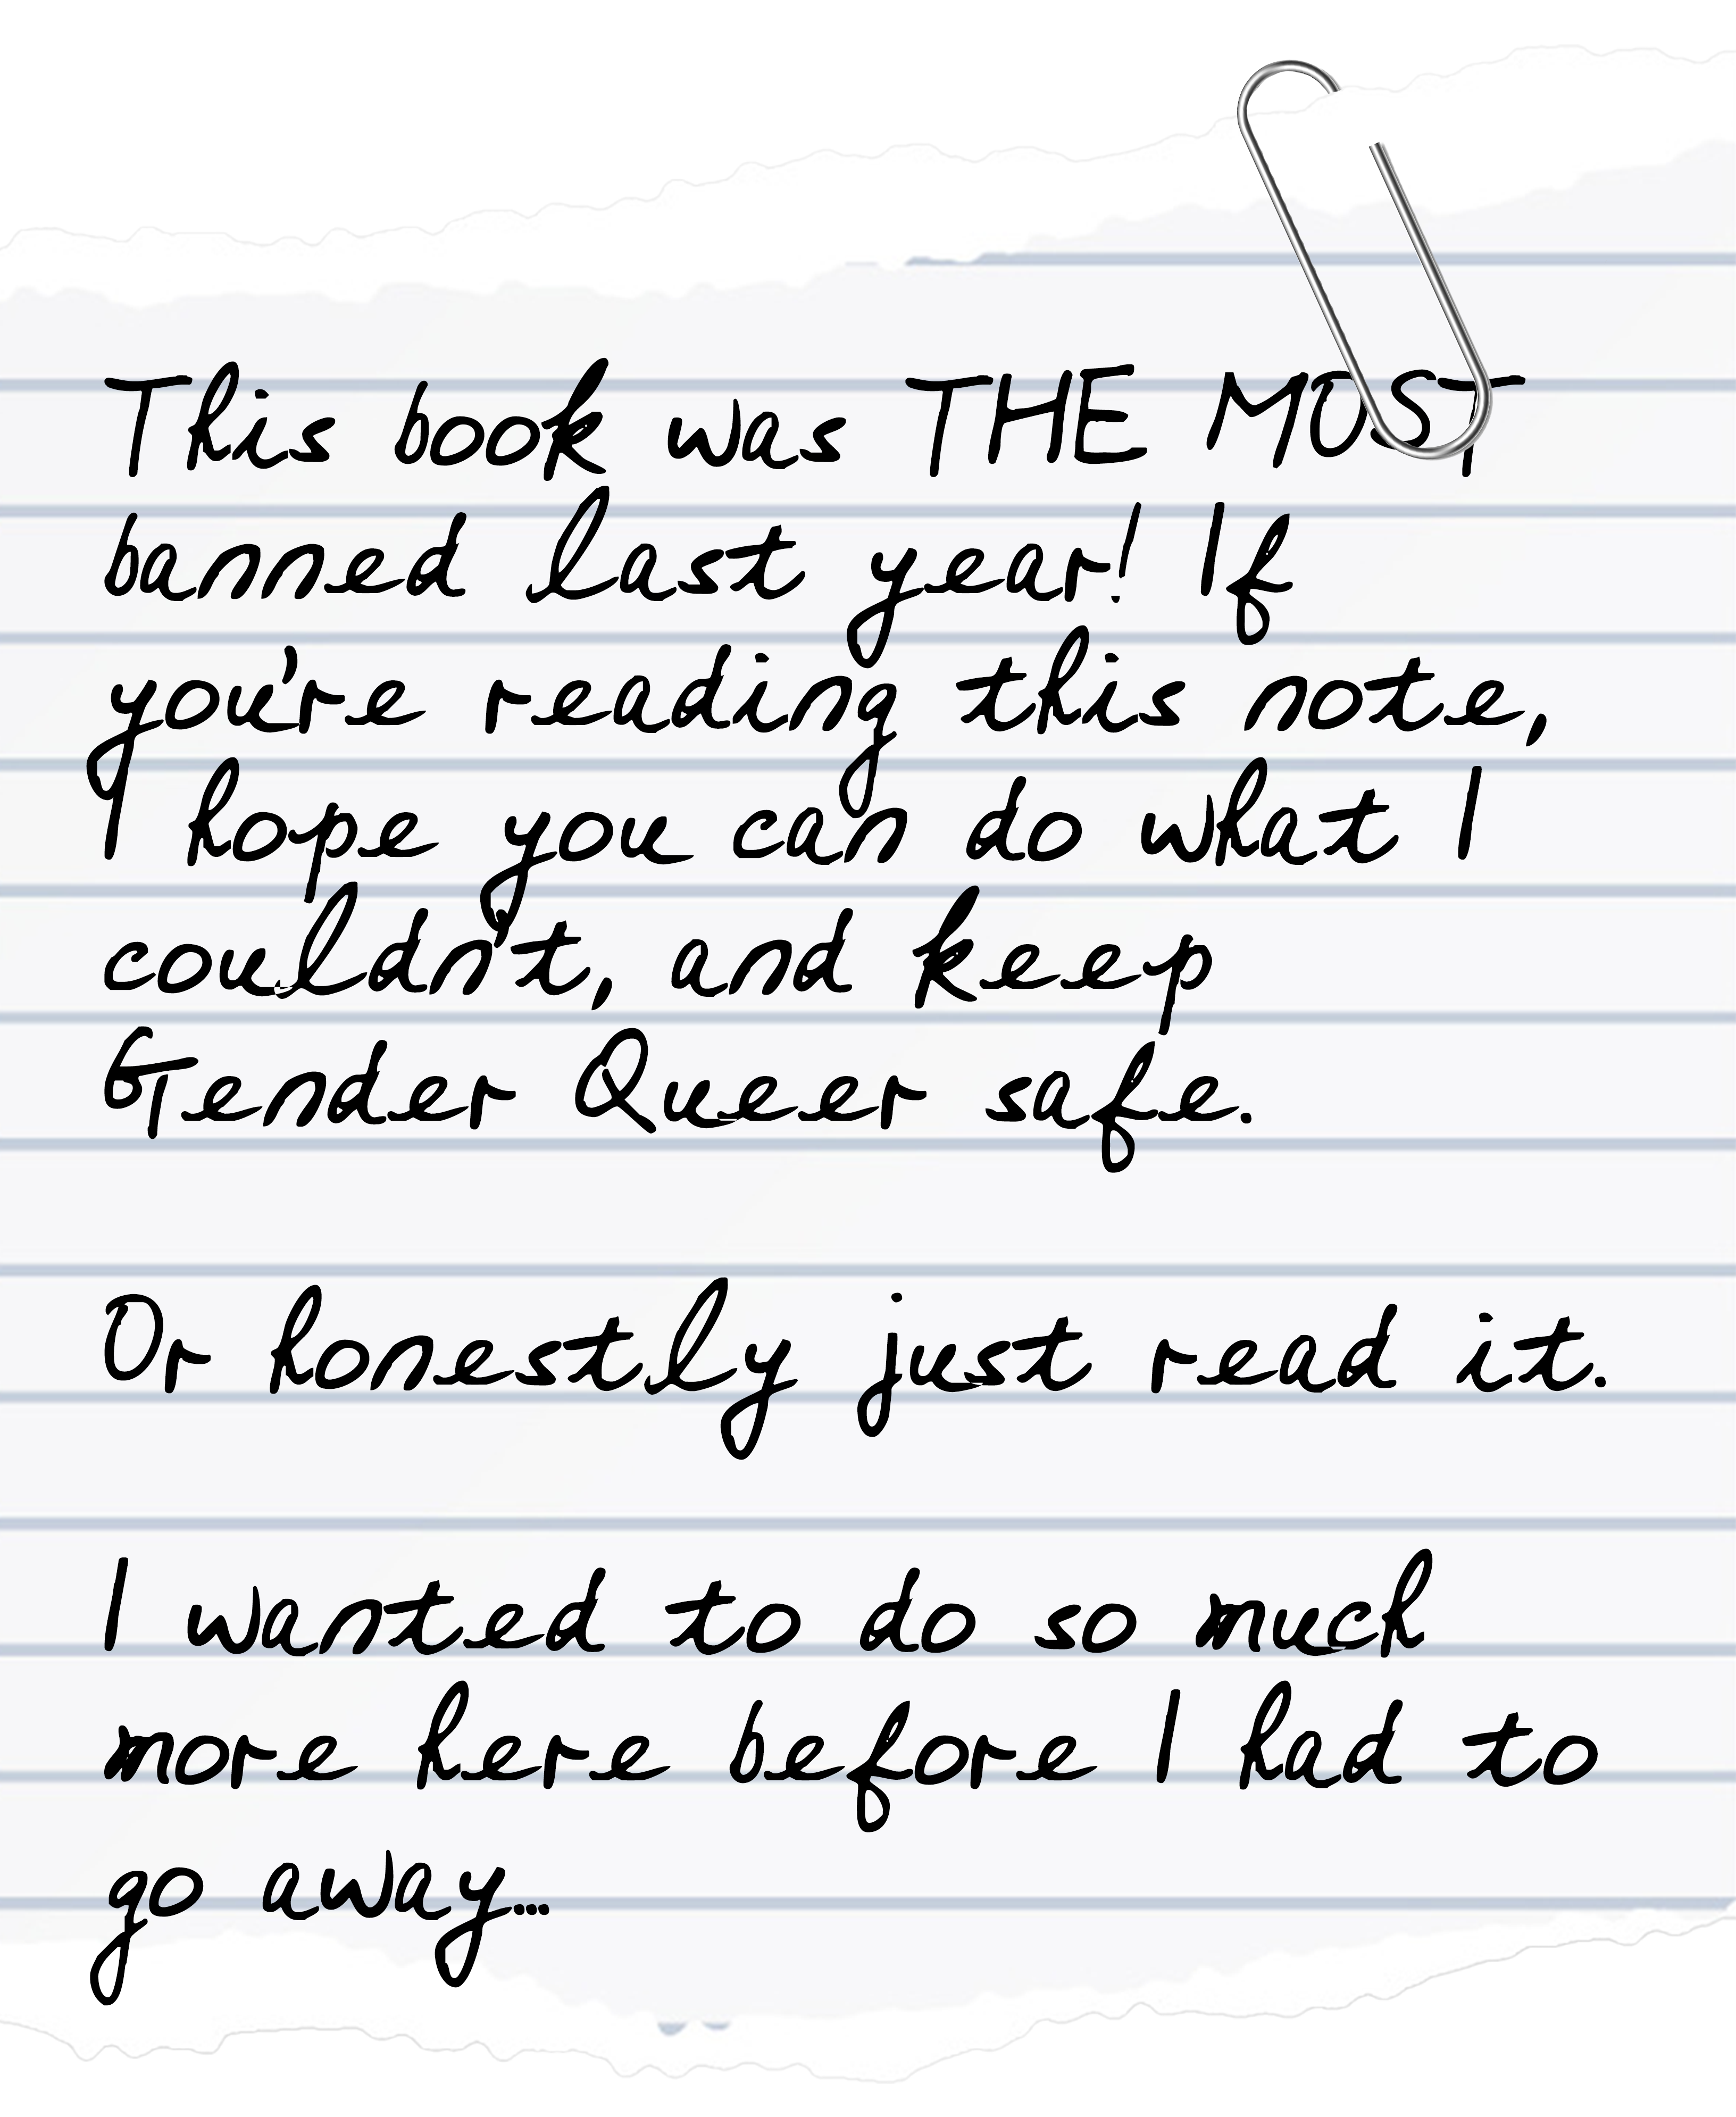 This book was THE MOST
banned last year! If
you're reading this note,
I hope you can do what I
couldn't, and keep
Gender Queer safe.
Or honestly just read it.
I wanted to do so much
more here before I had to
go away...